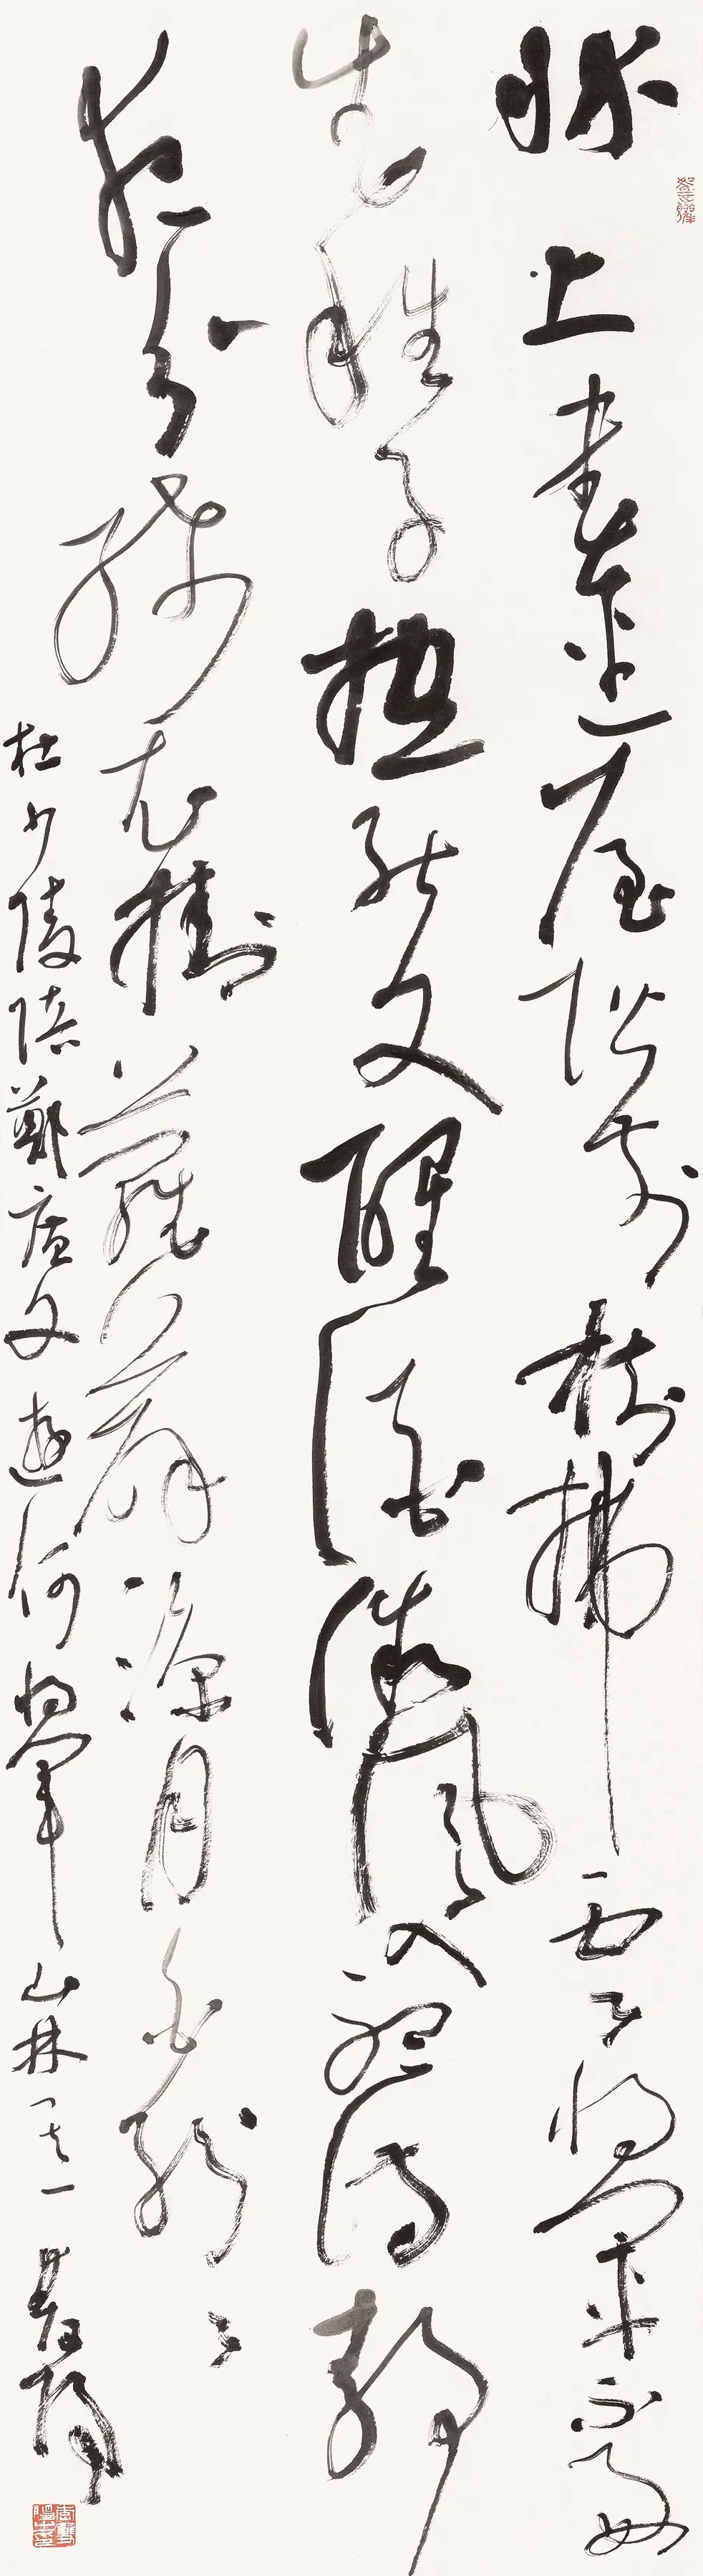 牀上書連屋階前樹拂雲將軍不好
武稚子總能文醒酒微風入聽詩靜
夜分絺衣掛蘿薜涼月白紛々
杜少陵陪鄭廣文遊何將軍山林其一